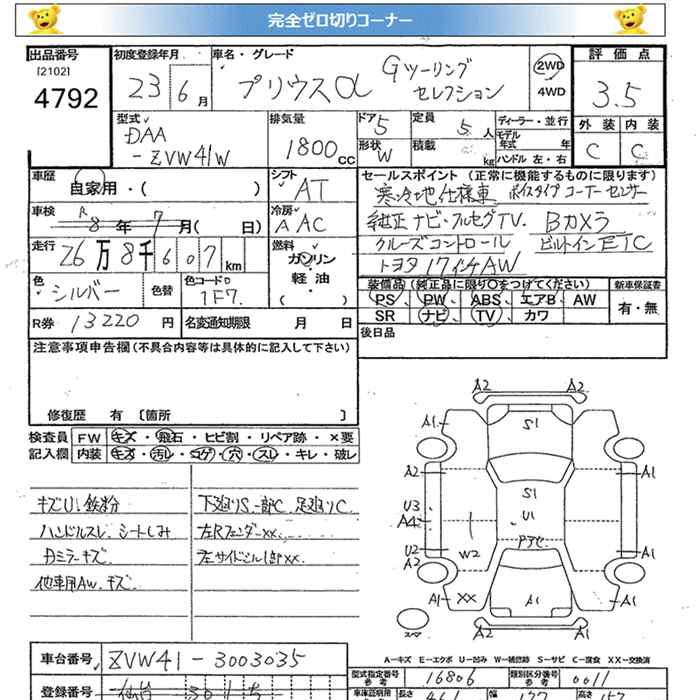 完全ゼロ切りコーナー
出品番号 初度登録年月 車名・グレード 評価点
[2102]
4792
23年6月 プリウスα Gツーリング セレクション 2WD 4WD 3.5
外装 内装
C C
型式 DAA -ZVW41W
排気量 1800cc
ドア 5 定員 5人 ディーラー・並行
形状 W 積載 kg モデル年式 年
ハンドル 左・右
車歴 自家用・( )
シフト AT
セールスポイント (正常に機能するものに限ります)
寒冷地仕様車 ボイスタイプコーナーセンサー
純正ナビ・フルセグTV. Bカメラ
クルーズコントロール ビルトインETC
トヨタ17インチAW
車検 R8年7月( 日)
冷房 AAC
走行 26万8千607km
燃料 ガソリン 軽油 ( )
色 シルバー 色替 色コードNo 1F7
装備品 (純正品に限り○をつけてください) 新車保証書
PS、PW、ABS、エアB、AW 有・無
SR ナビ、TV、カワ
R券 13220円 名変通知期限 月 日
後日品
注意事項申告欄(不具合内容等は具体的に記入して下さい)
修復歴 有 〔箇所 〕
検査員 FW キズ・飛石・ヒビ割・リペア跡・×要
記入欄 内装 キズ・汚レ・コゲ・穴・スレ・キレ・破レ
キズU.鉄粉 下廻りS.一部C.足廻りC
ハンドルスレ.シートしみ 左Rフェンダーxx.
Dミラーキズ 左サイドシル1部xx.
他車用AW.キズ
A2 A2
A1 S1 A1
A2 A1
S1
U3 U1
A4
U2 W2 A1
A2
A1 XX A1 A1
スマ
A-キズ E-エクボ U-凹み W-補修跡 S-サビ C-腐食 XX-交換済
車台番号 ZVW41-3003035
型式指定番号 16806 類別区分番号 0011
登録番号 仙台 301 ち